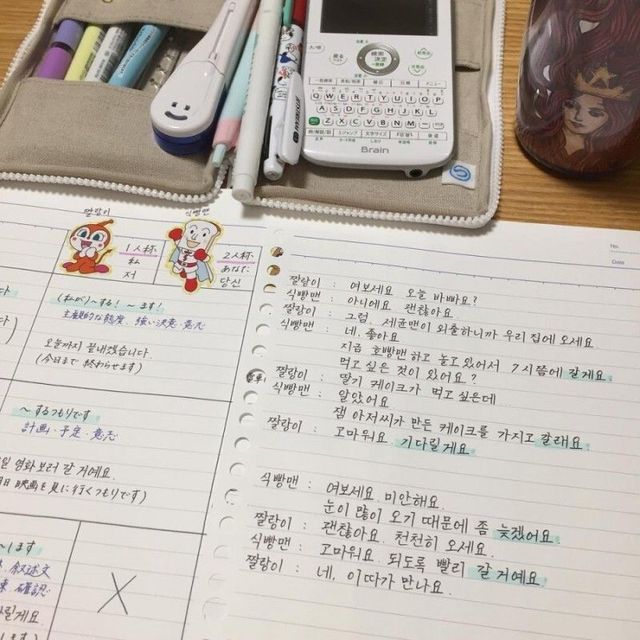 Brain
짤랑이 식빵맨
1人称
私
저
2人称
あなた
당신
(私が)~する! ~ます!
主観的な態度、強い決意・意志
오늘까지 끝내겠습니다.
(今日まで 終わらせます)
~するつもりです
計画・予定・意志
일 영화보러 갈 거예요.
日 映画も見に行くつもりです)
~します
叙述文
確認
릴게요.
No.
Date
짤랑이 : 여보세요 오늘 바빠요?
식빵맨 : 아니에요 괜찮아요
짤랑이 : 그럼, 세균맨이 외출하니까 우리 집에 오세요
식빵맨 : 네, 좋아요
지금 호빵맨하고 놀고 있어서 7시쯤에 갈게요.
짤랑이 : 먹고 싶은 것이 있어요?
식빵맨 : 딸기 케이크가 먹고 싶은데
짤랑이 : 알았어요
잼 아저씨가 만든 케이크를 가지고 갈래요.
고마워요. 기다릴게요.
식빵맨 : 여보세요. 미안해요.
눈이 많이 오기 때문에 좀 늦겠어요.
짤랑이 : 괜찮아요. 천천히 오세요.
식빵맨 : 고마워요. 되도록 빨리 갈 거예요.
짤랑이 : 네, 이따가 만나요.